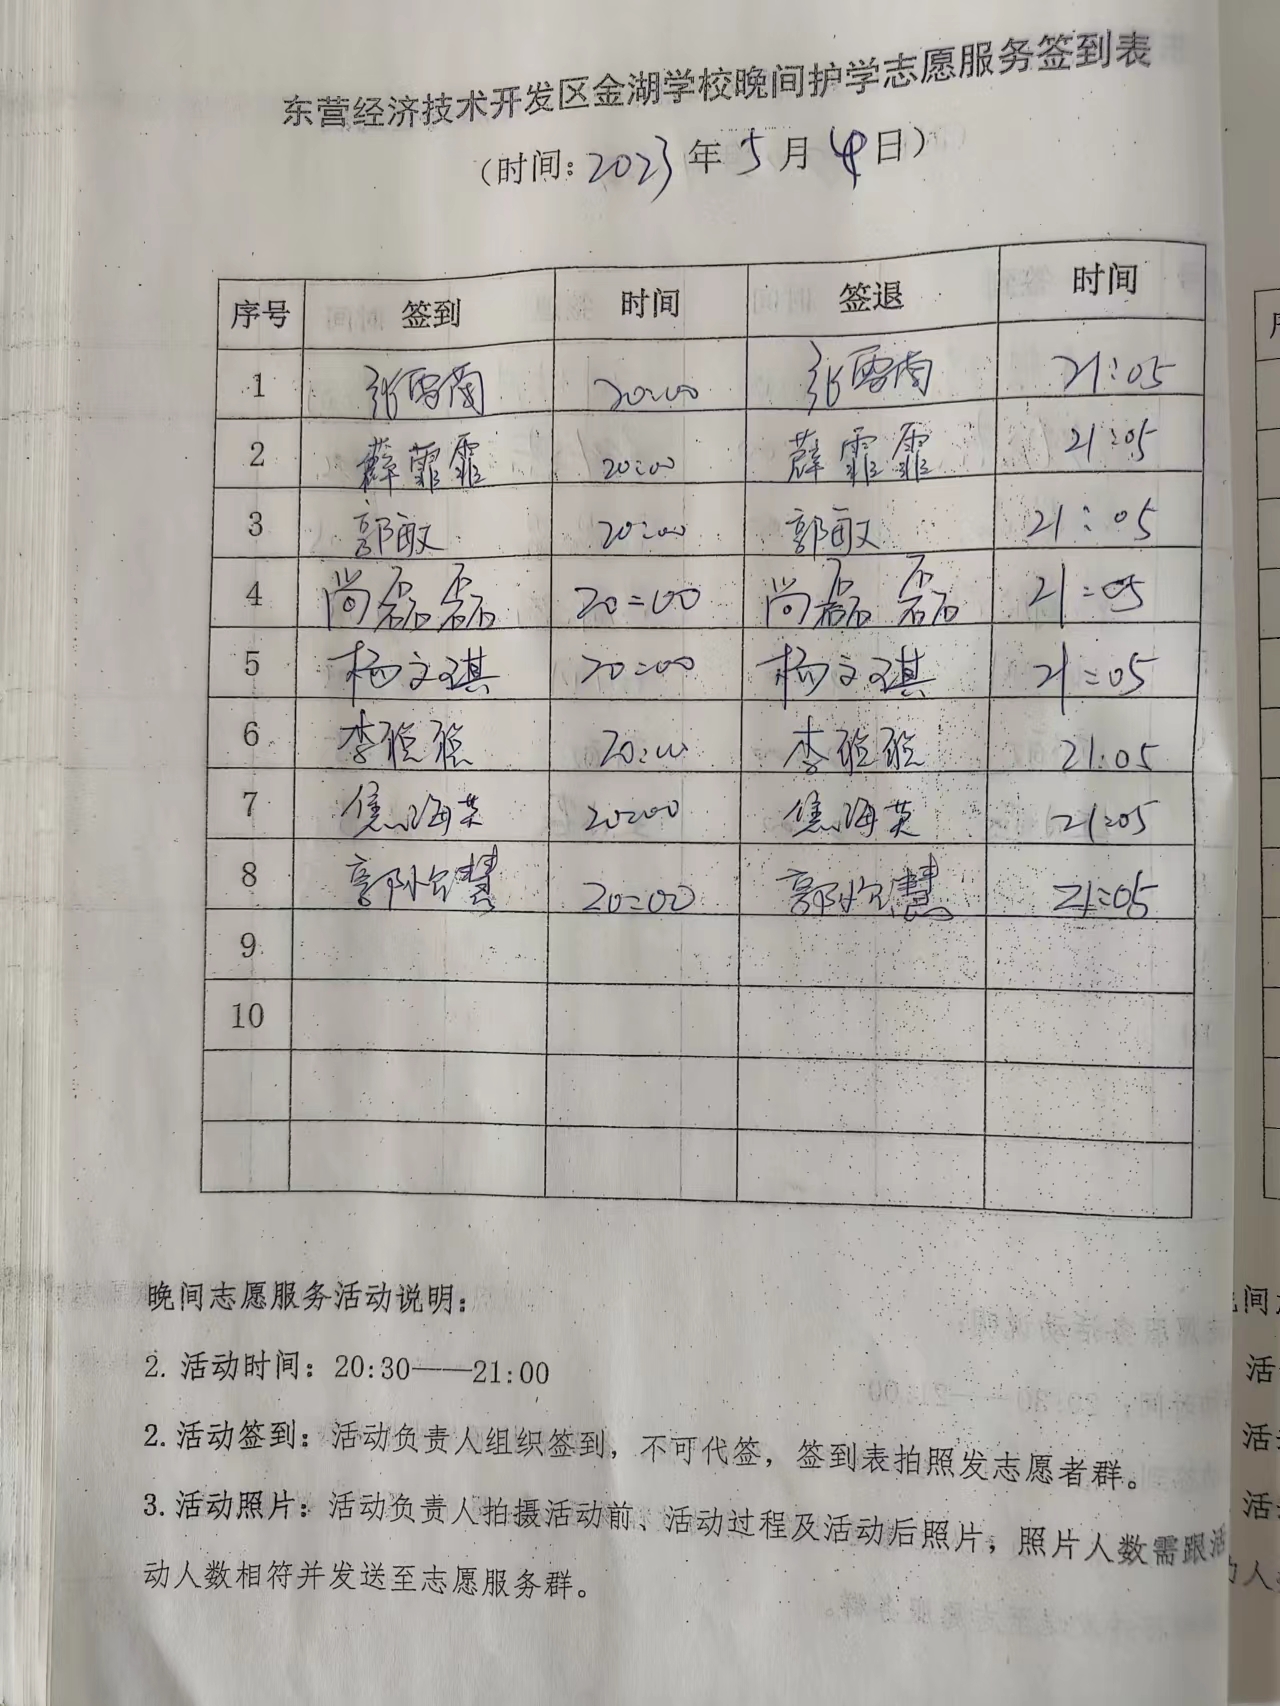 东营经济技术开发区金湖学校晚间护学志愿服务签到表
（时间：2023年5月4日）
序号 签到 时间 签退 时间
1 张雪南 20:00 张雪南 21:05
2 薛霏霏 20:00 薛霏霏 21:05
3 郭敏 20:00 郭敏 21:05
4 尚磊磊 20:00 尚磊磊 21:05
5 杨文琪 20:00 杨文琪 21:05
6 李 20:00 李 21:05
7 焦海英 20:00 焦海英 21:05
8 郭 慧 20:00 郭 慧 21:05
9
10
晚间志愿服务活动说明：
2. 活动时间：20:30——21:00
2. 活动签到：活动负责人组织签到，不可代签，签到表拍照发志愿者群。
3. 活动照片：活动负责人拍摄活动前、活动过程及活动后照片，照片人数需跟活
动人数相符并发送至志愿服务群。